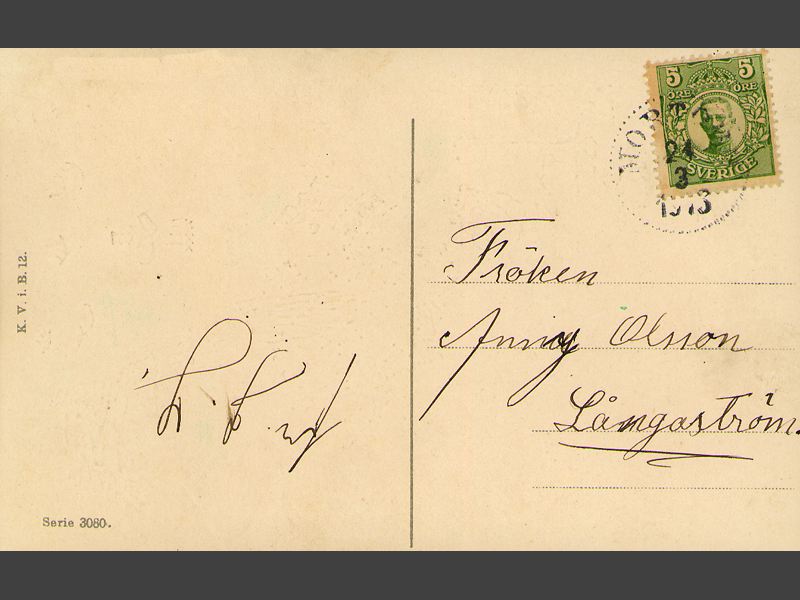 5 5
ÖRE ÖRE
SVERIGE
24
3
1913
Fröken
Anny Olsson
Långaström.
K. V. i. B. 12.
Serie 3080.